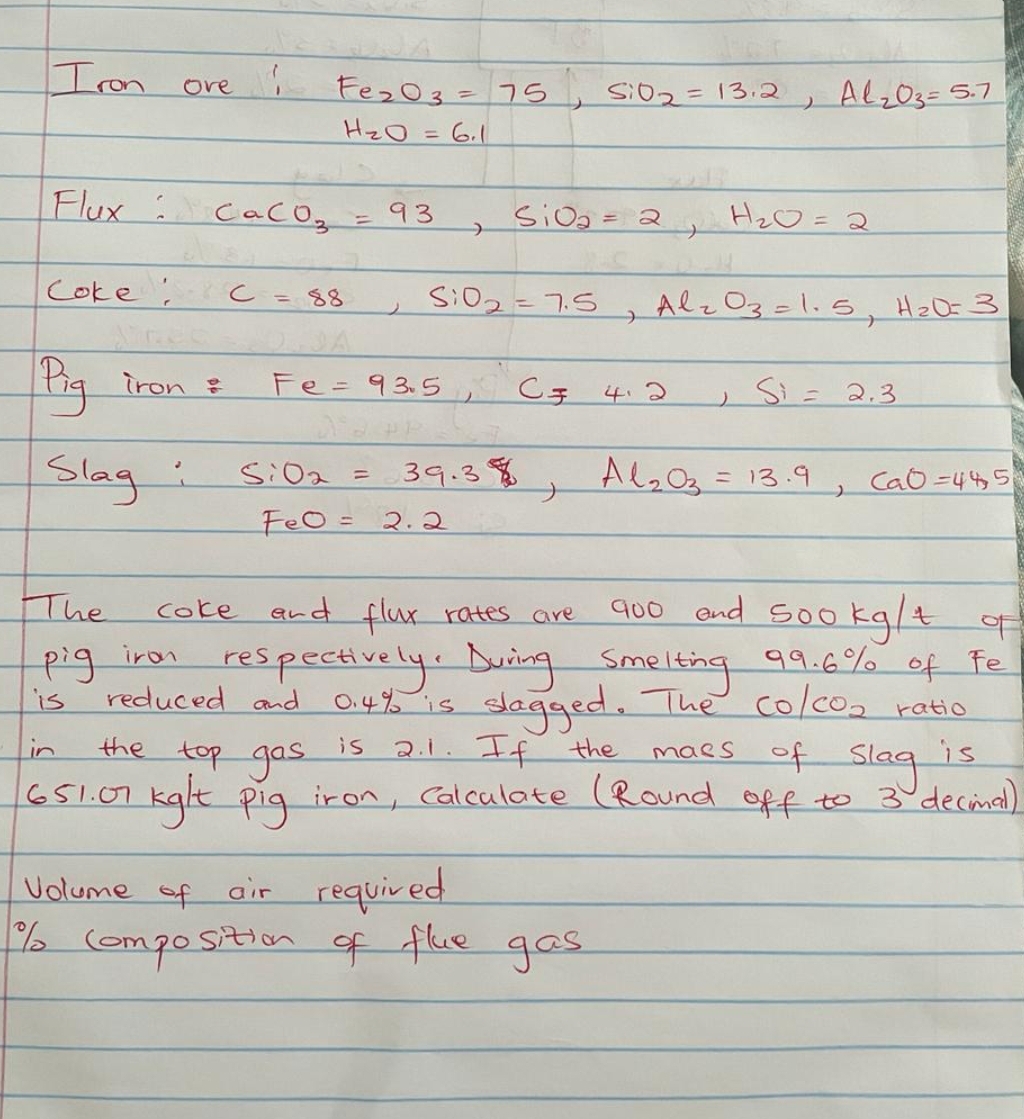 Iron ore : Fe2O3 = 75 , SiO2 = 13.2 , Al2O3= 5.7
H2O = 6.1
Flux : CaCO3 = 93 , SiO2 = 2 , H2O = 2
Coke : C = 88 , SiO2 = 7.5 , Al2O3 = 1.5 , H2O= 3
Pig iron : Fe = 93.5 , C = 4.2 , Si = 2.3
Slag : SiO2 = 39.3 , Al2O3 = 13.9 , CaO = 44,5
FeO = 2.2
The coke and flux rates are 900 and 500 kg/t of
pig iron respectively. During smelting 99.6% of Fe
is reduced and 0.4% is slagged. The CO/CO2 ratio
in the top gas is 2.1. If the mass of slag is
651.07 kg/t pig iron, calculate (Round off to 3 decimal)
Volume of air required
% composition of flue gas